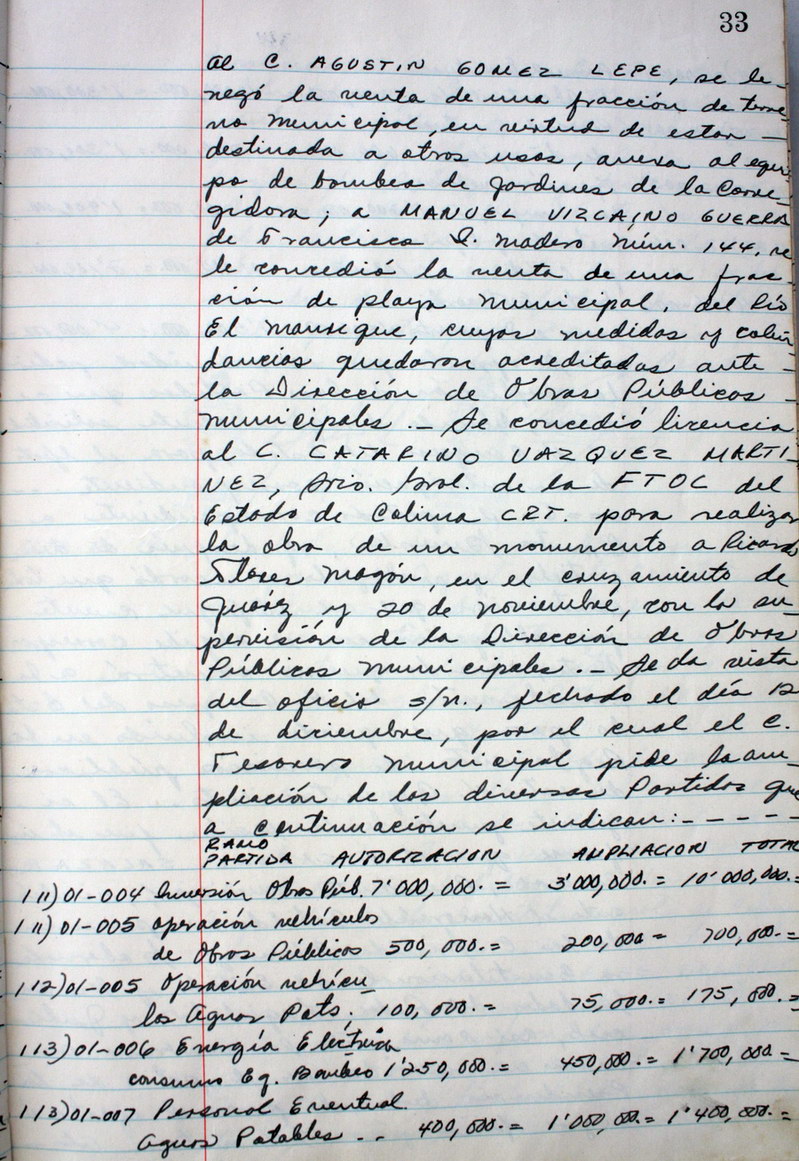 33
al C. AGUSTIN GOMEZ LEPE, se le-
negó la venta de una fracción de terre-
no municipal, en virtud de estar —
destinada a otros usos, anexa al equi-
po de bombeo de Jardines de la Corre-
gidora; a MANUEL VIZCAINO GUERRA
de Francisco I. Madero núm. 144, se
le concedió la venta de una frac-
ción de playa municipal, del Río
El Manrique, cuyas medidas y colin-
dancias quedaron acreditadas ante —
la Dirección de Obras Públicas —
municipales. — Se concedió licencia
al C. CATARINO VAZQUEZ MARTI-
NEZ, Srio. Gral. de la FTOC del
Estado de Colima CRT. para realizar
la obra de un monumento a Ricardo
Flores Magón, en el cruzamiento de
Juárez y 20 de noviembre, con la su-
pervisión de la Dirección de Obras
Públicas municipales. — Se da vista
del oficio s/n., fechado el día 12
de diciembre, por el cual el C.
Tesorero municipal pide la am-
pliación de las diversas Partidas que
a continuación se indican: - - - - -
RAMO
PARTIDA AUTORIZACION AMPLIACION TOTAL
111) 01-004 Inversión Obras Púb. 7'000,000.= 3'000,000.= 10'000,000.=
111) 01-005 operación vehículos
de Obras Públicas 500,000.= 200,000= 700,000.=
112) 01-005 Operación vehícu-
los Aguas Pots. 100,000.= 75,000.= 175,000.=
113) 01-006 Energía Eléctrica
consumo Eq. Bombeo 1'250,000.= 450,000.= 1'700,000=
113) 01-007 Personal Eventual
Aguas Potables - - 400,000.= 1'000,000.= 1'400,000.=